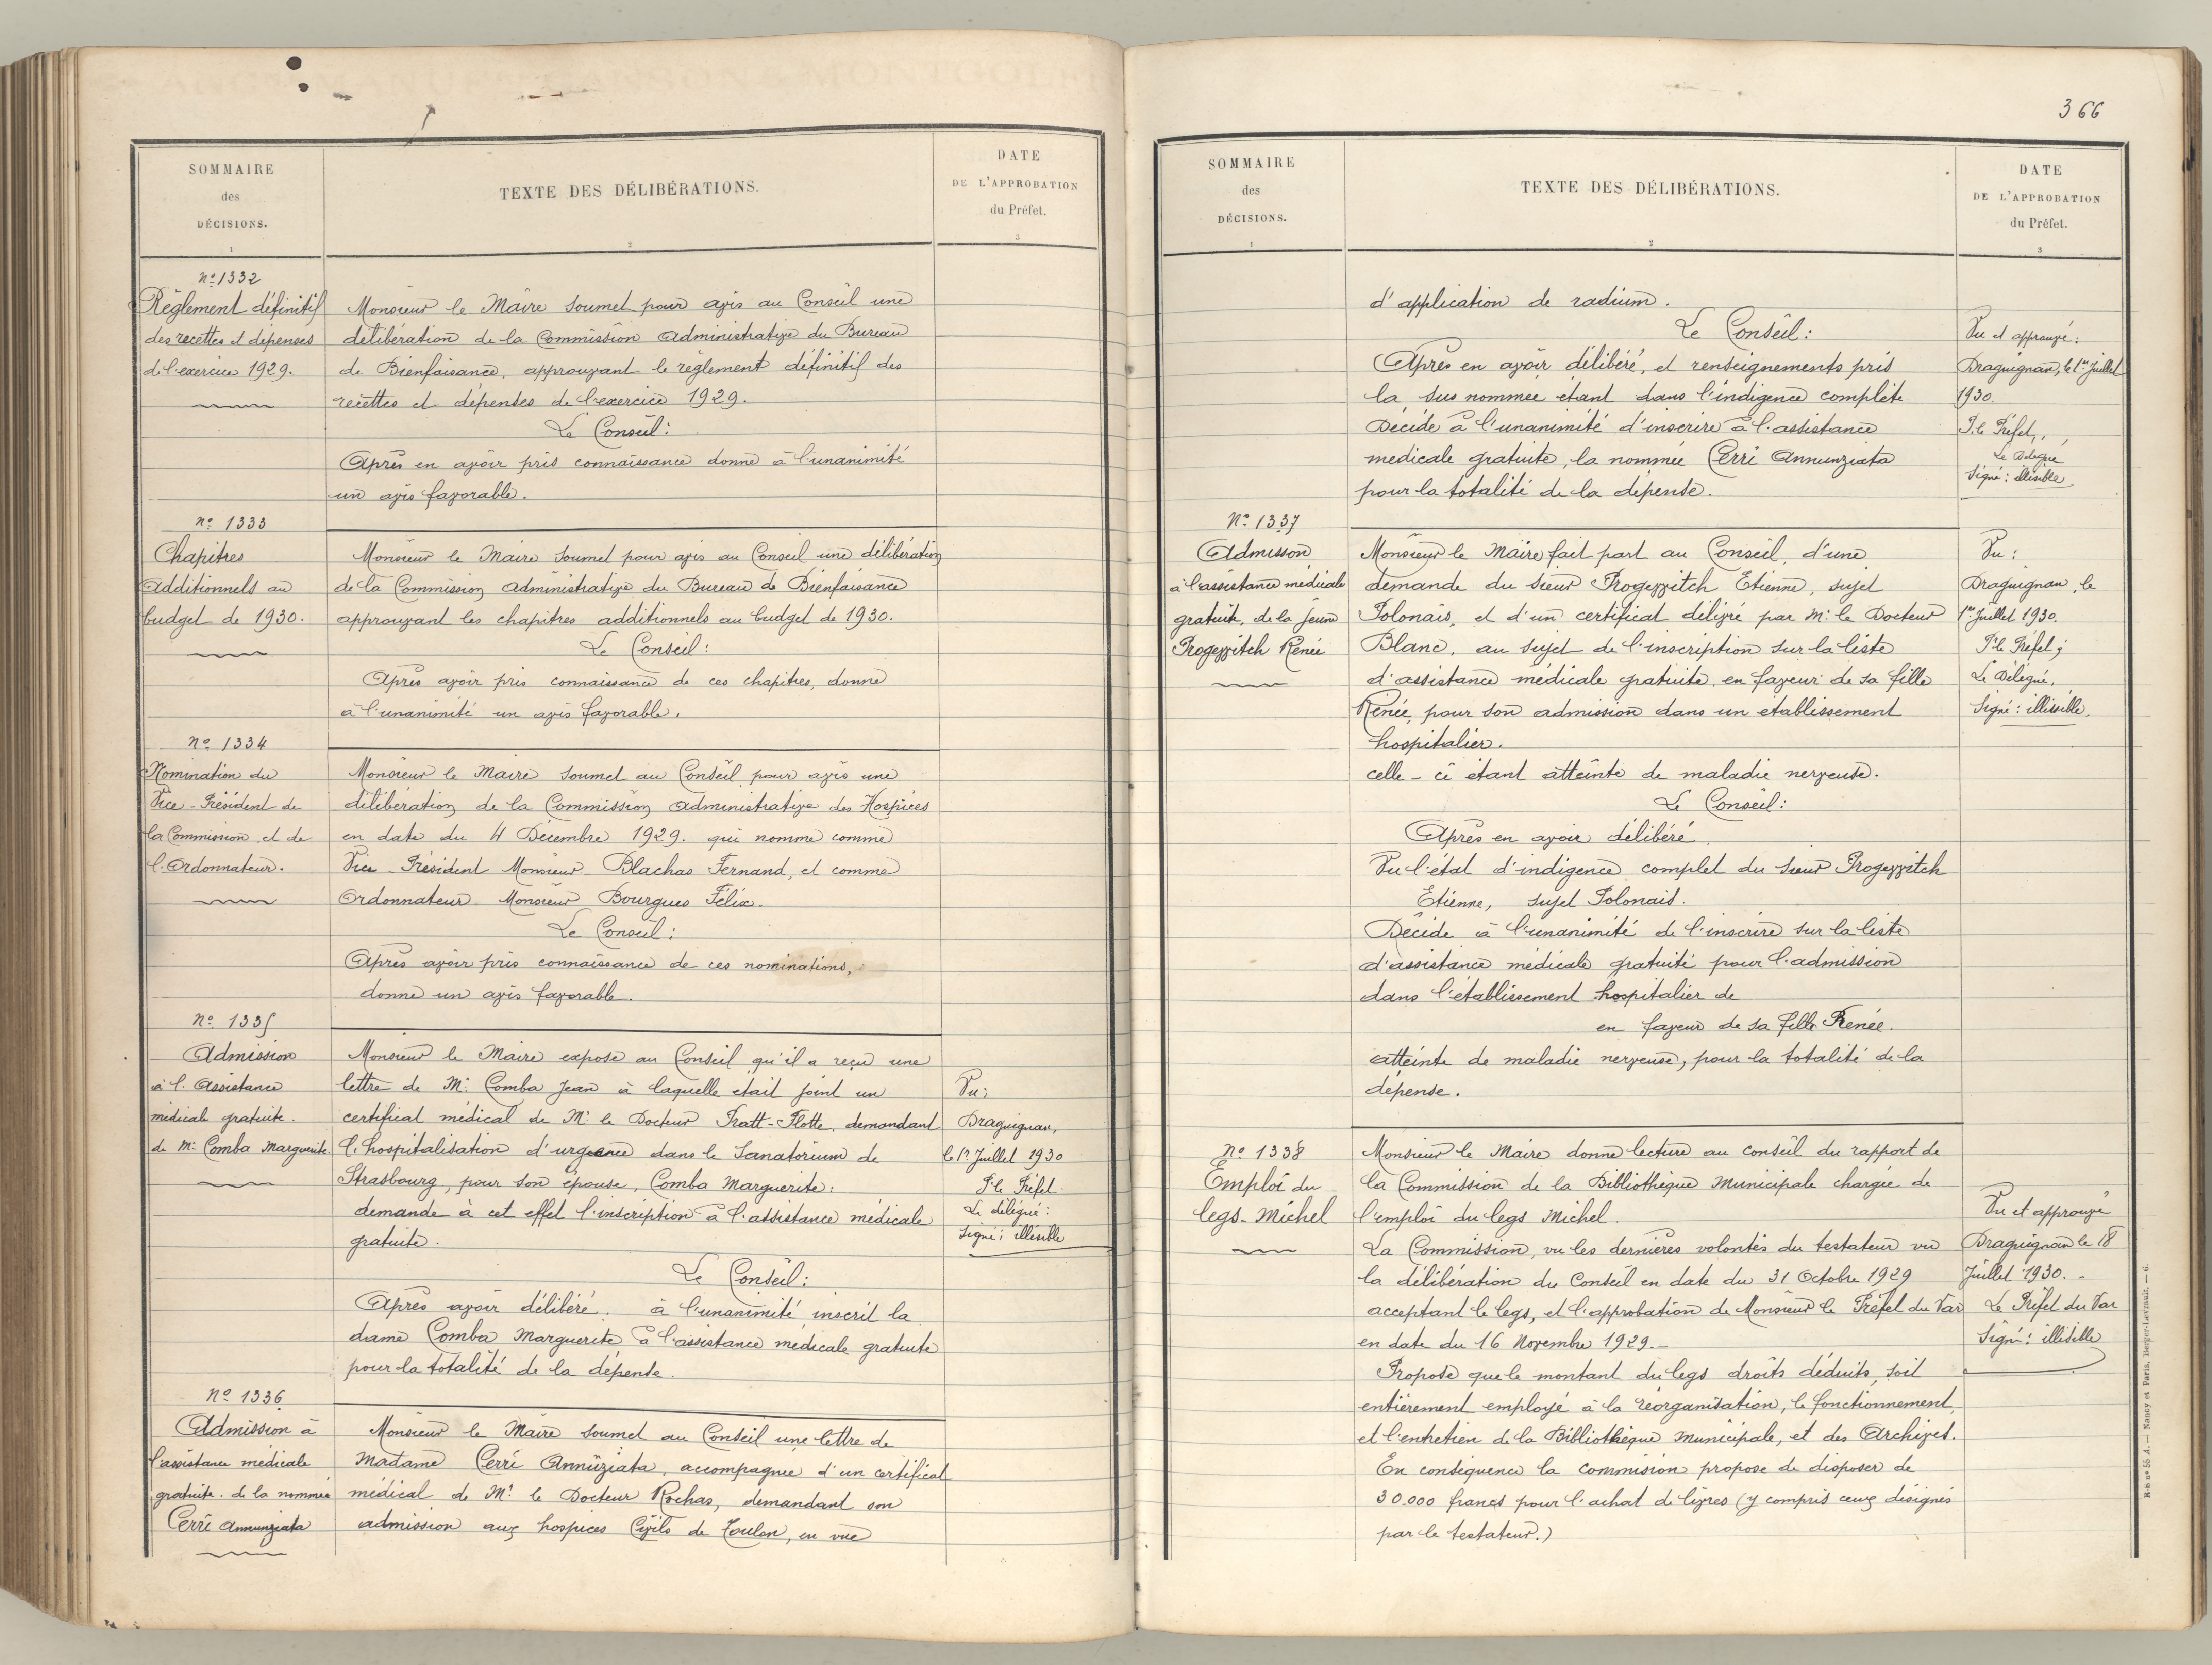 SOMMAIRE
des
DÉCISIONS.
1
TEXTE DES DÉLIBÉRATIONS.
2
DATE
DE L'APPROBATION
du Préfet.
3
No 1332
Règlement définitif
des recettes et dépenses
de l'exercice 1929.
Monsieur le Maire soumet pour avis au Conseil une
délibération de la Commission Administrative du Bureau
de Bienfaisance, approuvant le règlement définitif des
recettes et dépenses de l'exercice 1929.
Le Conseil:
Après en avoir pris connaissance donne à l'unanimité
un avis favorable.
No 1333
Chapitres
Additionnels au
budget de 1930.
Monsieur le Maire soumet pour avis au Conseil une délibération
de la Commission Administrative du Bureau de Bienfaisance
approuvant les chapitres additionnels au budget de 1930.
Le Conseil:
Après avoir pris connaissance de ces chapitres, donne
à l'unanimité un avis favorable.
No 1334
Nomination du
Vice-Président de
la Commission et de
l'Ordonnateur.
Monsieur le Maire soumet au Conseil pour avis une
délibération de la Commission Administrative des Hospices
en date du 4 Décembre 1929. qui nomme comme
Vice-Président Monsieur Blachas Fernand, et comme
Ordonnateur Monsieur Bourgues Félix.
Le Conseil:
Après avoir pris connaissance de ces nominations,
donne un avis favorable.
No 1335
Admission
à l'Assistance
médicale gratuite.
de Me Comba Marguerite
Monsieur le Maire expose au Conseil qu'il a reçu une
lettre de Mr Comba Jean à laquelle était joint un
certificat médical de Mr le Docteur Pratt-Flotte, demandant
l'hospitalisation d'urgence dans le Sanatorium de
Strasbourg, pour son épouse, Comba Marguerite:
demande à cet effet l'inscription à l'assistance médicale
gratuite.
Le Conseil:
Après avoir délibéré. à l'unanimité inscrit la
dame Comba Marguerite à l'assistance médicale gratuite
pour la totalité de la dépense.
Vu:
Draguignan,
le 1er Juillet 1930
P. le Préfet
Le délégué:
Signé: illisible
No 1336
Admission à
l'assistance médicale
gratuite. de la nommée
Cerri Annunziata
Monsieur le Maire soumet au Conseil une lettre de
Madame Cerri Annuziata, accompagnée d'un certificat
médical de Mr le Docteur Rochas, demandant son
admission aux hospices Civils de Toulon, en vue
366
SOMMAIRE
des
DÉCISIONS.
1
TEXTE DES DÉLIBÉRATIONS.
2
DATE
DE L'APPROBATION
du Préfet.
3
d'application de radium.
Le Conseil:
Après en avoir délibéré, et renseignements pris
la sus nommée étant dans l'indigence complète
Décide à l'unanimité d'inscrire à l'assistance
médicale gratuite, la nommée Cerri Annunziata
pour la totalité de la dépense.
Vu et approuvé:
Draguignan, le 1er Juillet
1930.
P. le Préfet,
Le Délégué
Signé: illisible
No 1337
Admisson
à l'assistance médicale
gratuite, de la jeune
Progezzitch Renée
Monsieur le Maire fait part au Conseil, d'une
demande du sieur Progezzitch Etienne, sujet
Polonais, et d'un certificat délivré par Mr le Docteur
Blanc, au sujet de l'inscription sur la liste
d'assistance médicale gratuite, en faveur de sa fille
Renée, pour son admission dans un etablissement
hospitalier.
celle-ci étant atteinte de maladie nerveuse.
Le Conseil:
Après en avoir délibéré
Vu l'état d'indigence complet du sieur Progezzitch
Etienne, sujet Polonais.
Décide à l'unanimité de l'inscrire sur la liste
d'assistance médicale gratuite pour l'admission
dans l'établissement hospitalier de
en faveur de sa fille Renée.
atteinte de maladie nerveuse, pour la totalité de la
dépense.
Vu:
Draguignan, le
1er Juillet 1930.
P. le Préfet;
Le Délégué,
Signé: illissible.
No 1338
Emploi du
legs-Michel
Monsieur le Maire donne lecture au conseil du rapport de
la Commission de la Bibliothèque Municipale chargée de
l'emploi du legs Michel.
La Commission, vu les dernières volontés du testateur vu
la délibération du Conseil en date du 31 Octobre 1929
acceptant le legs, et l'approbation de Monsieur le Préfet du Var
en date du 16 Novembre 1929.-
Propose que le montant du legs droits déduits, soit
entièrement employé à la réorganisation, le fonctionnement,
et l'entretien de la Bibliothèque Municipale, et des Archives.
En conséquence la commision propose de disposer de
30.000 francs pour l'achat de livres (y compris ceux désignés
par le testateur.)
Vu et approuvé
Draguignan le 18
Juillet 1930.-
Le Préfet du Var
Signé: illisible
N-b no 55 A. — Nancy et Paris, Berger-Levrault. — 6.